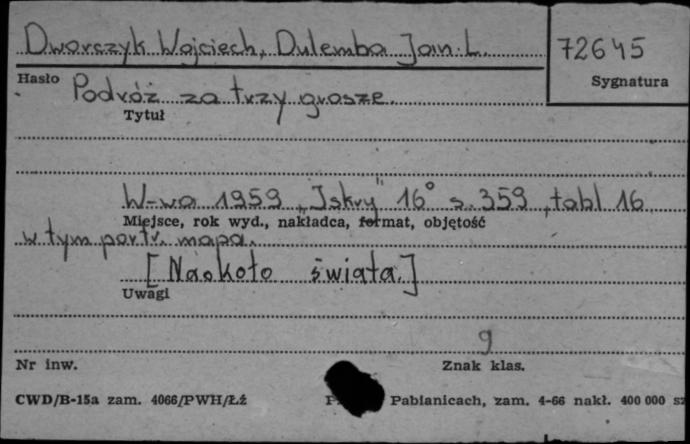 Dworczyk Wojciech, Dulemba Jan L.
72645
Hasło
Sygnatura
Podróż za trzy grosze.
Tytuł
W-wa 1959 „Iskry" 16° s. 359, tabl 16
Miejsce, rok wyd., nakładca, format, objętość
w tym portr. mapa.
[Naokoło świata.]
Uwagi
9
Nr inw.
Znak klas.
CWD/B-15a zam. 4066/PWH/Łź
Pabianicach, zam. 4-66 nakł. 400 000